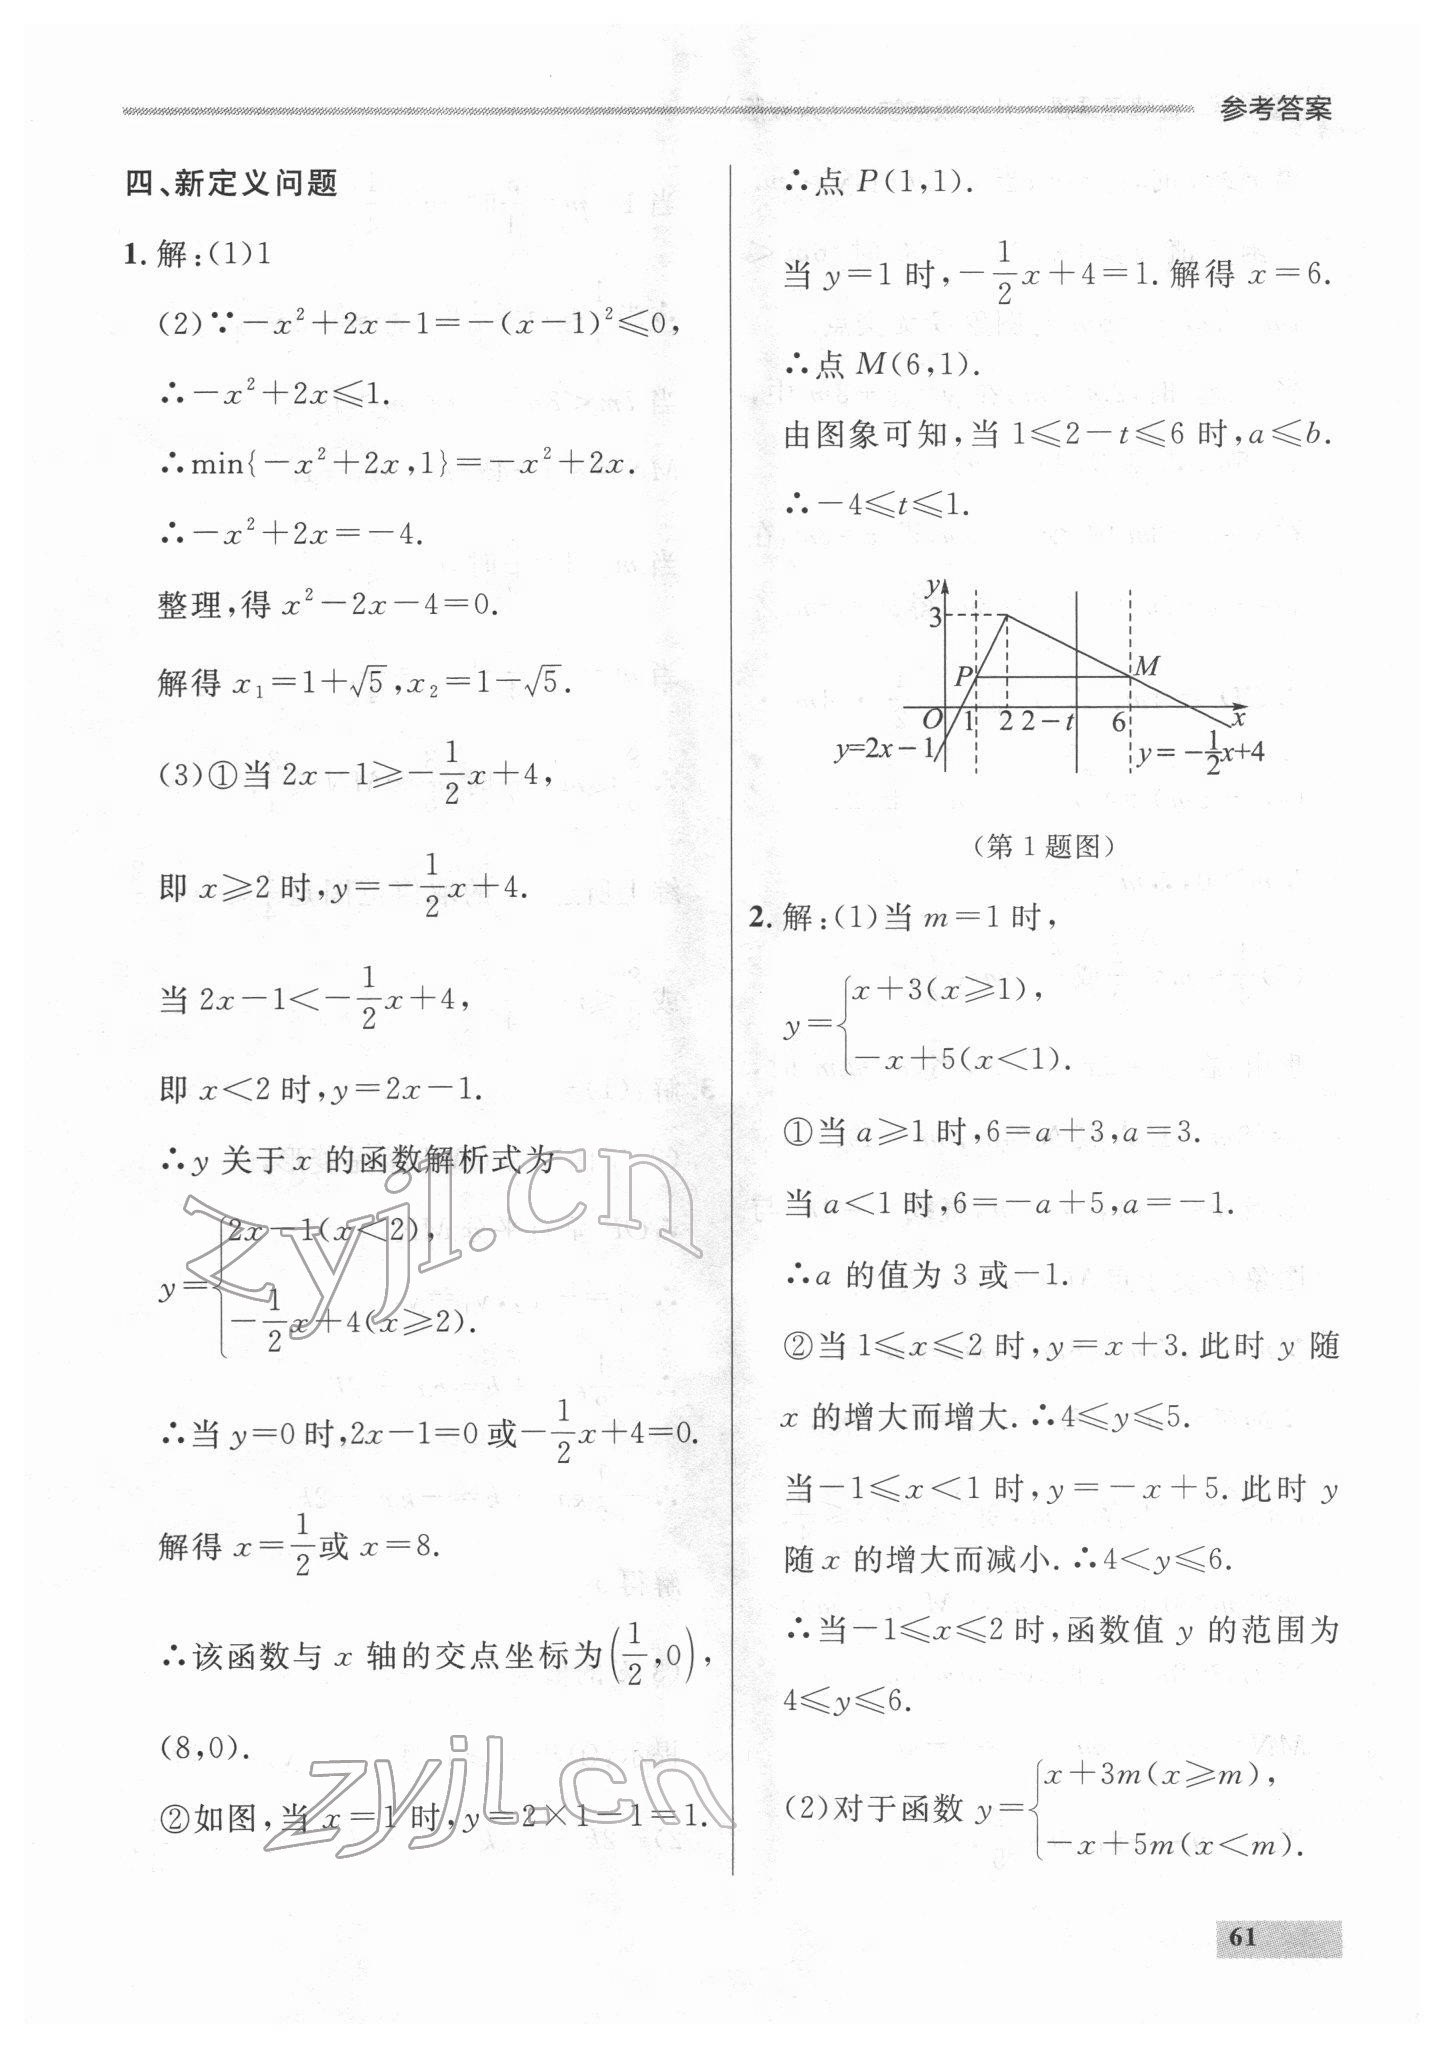 参考答案
四、新定义问题
1. 解:(1)1
(2)∵-x²+2x-1=-(x-1)²≤0,
∴-x²+2x≤1.
∴min{-x²+2x,1}=-x²+2x.
∴-x²+2x=-4.
整理,得 x²-2x-4=0.
解得 x₁=1+√5,x₂=1-√5.
(3)①当 2x-1≥-1/2x+4,
即 x≥2 时,y=-1/2x+4.
当 2x-1<-1/2x+4,
即 x<2 时,y=2x-1.
∴y 关于 x 的函数解析式为
y={2x-1(x<2),
-1/2x+4(x≥2).
∴当 y=0 时,2x-1=0 或-1/2x+4=0.
解得 x=1/2或 x=8.
∴该函数与 x 轴的交点坐标为(1/2,0),
(8,0).
②如图,当 x=1 时,y=2×1-1=1.
∴点 P(1,1).
当 y=1 时,-1/2x+4=1.解得 x=6.
∴点 M(6,1).
由图象可知,当 1≤2-t≤6 时,a≤b.
∴-4≤t≤1.
y
3
P
M
O 1 2 2-t 6 x
y=2x-1
y=-1/2x+4
(第 1 题图)
2. 解:(1)当 m=1 时,
y={x+3(x≥1),
-x+5(x<1).
①当 a≥1 时,6=a+3,a=3.
当 a<1 时,6=-a+5,a=-1.
∴a 的值为 3 或-1.
②当 1≤x≤2 时,y=x+3.此时 y 随
x 的增大而增大.∴4≤y≤5.
当-1≤x<1 时,y=-x+5.此时 y
随 x 的增大而减小.∴4<y≤6.
∴当-1≤x≤2 时,函数值 y 的范围为
4≤y≤6.
(2)对于函数 y={x+3m(x≥m),
-x+5m(x<m).
61
zyjl.cn
zyjl.cn